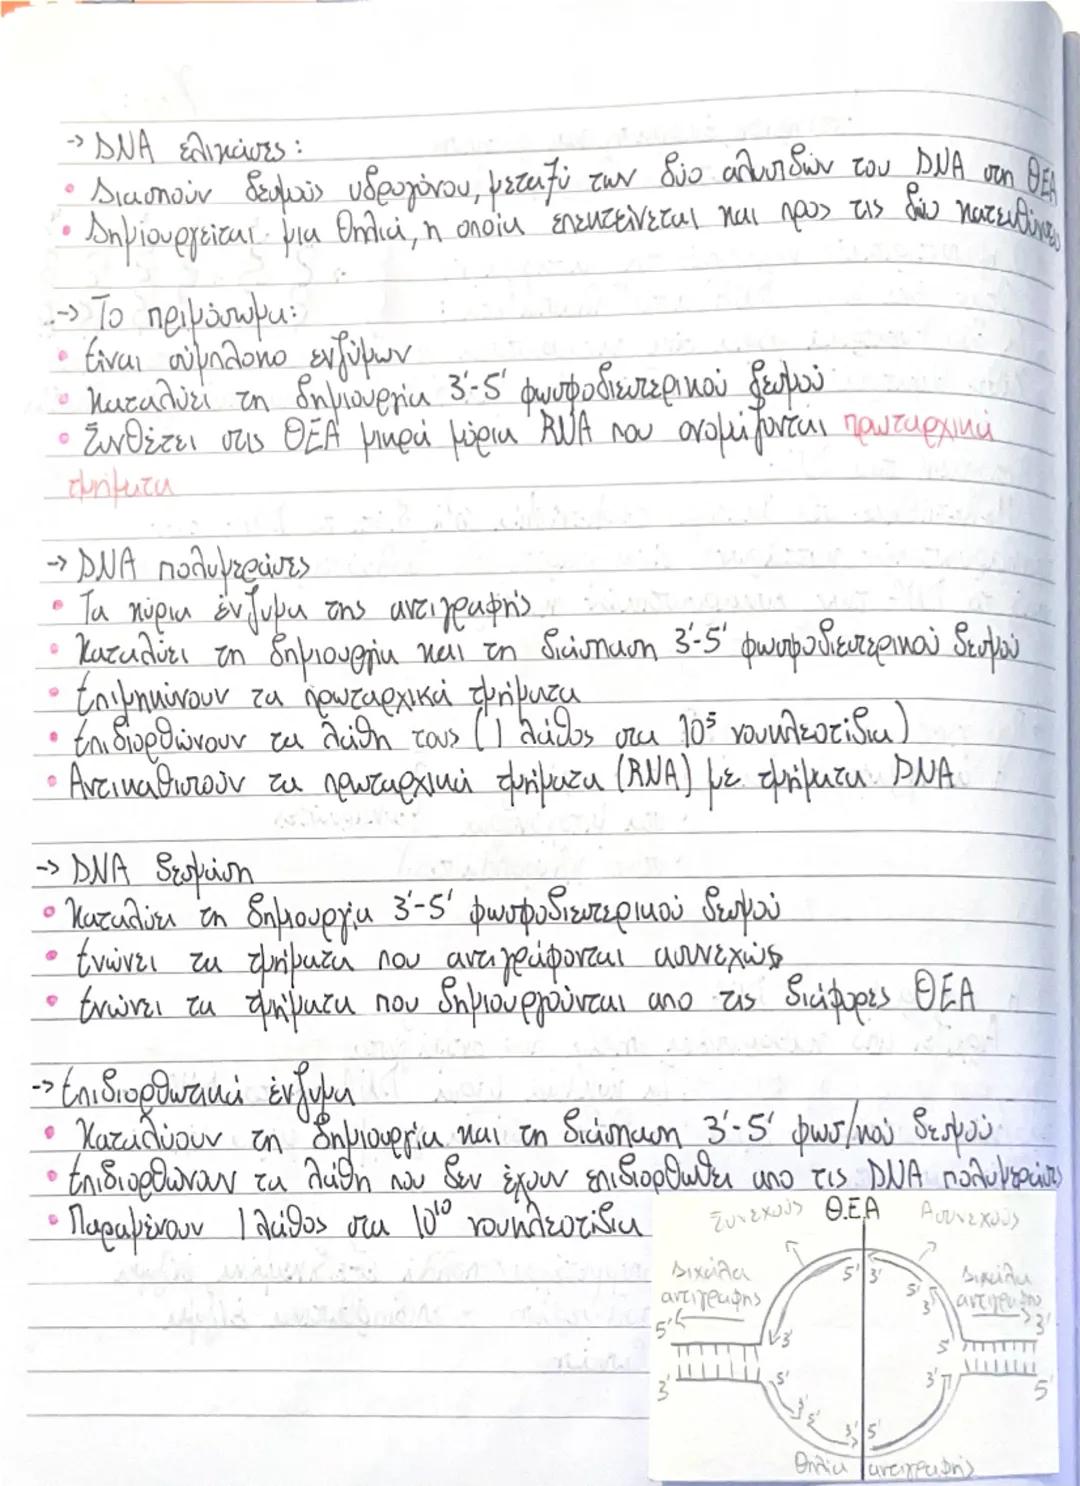 -> DNA ελικάσες:
• Διασπούν δεσμούς υδρογόνου, μεταξύ των δύο αλυσιδών του DNA στη ΘΕΑ
• Δημιουργείται μια θηλιά, η οποία επεκτείνεται και προς τις δύο κατευθύνσεις
-> Το πριμόσωμα:
• Είναι σύμπλοκο ενζύμων
• Καταλύει τη δημιουργία 3'-5' φωσφοδιεστερικού δεσμού
• Συνθέτει στις ΘΕΑ μικρά μόρια RNA που ονομάζονται πρωταρχικά
τμήματα
-> DNA πολυμεράσες
• Τα κύρια ένζυμα της αντιγραφής
• Καταλύει τη δημιουργία και τη διάσπαση 3'-5' φωσφοδιεστερικού δεσμού
• Επιμηκύνουν τα πρωταρχικά τμήματα
• Επιδιορθώνουν τα λάθη τους (1 λάθος στα 10⁵ νουκλεοτίδια)
• Αντικαθιστούν τα πρωταρχικά τμήματα (RNA) με τμήματα DNA
-> DNA δεσμάση
• Καταλύει τη δημιουργία 3'-5' φωσφοδιεστερικού δεσμού
• Ενώνει τα τμήματα που αντιγράφονται ασυνεχώς
• Ενώνει τα τμήματα που δημιουργούνται απο τις διάφορες ΘΕΑ
-> Επιδιορθωτικά ένζυμα
• Καταλύουν τη δημιουργία και τη διάσπαση 3'-5' φωσ/κού δεσμού
• Επιδιορθώνουν τα λάθη που δεν έχουν επιδιορθωθεί απο τις DNA πολυμεράσες
• Παραμένουν 1 λάθος στα 10¹⁰ νουκλεοτίδια
Συνεχούς Θ.Ε.Α Ασυνεχούς
Διχάλα
αντιγραφής
Διχάλα
αντιγραφής
5' 3'
5' 3'
5' 3'
3' 5' 5'
3' 5' 3' 5'
3' 5' 3' 5'
Θηλιά αντιγραφής